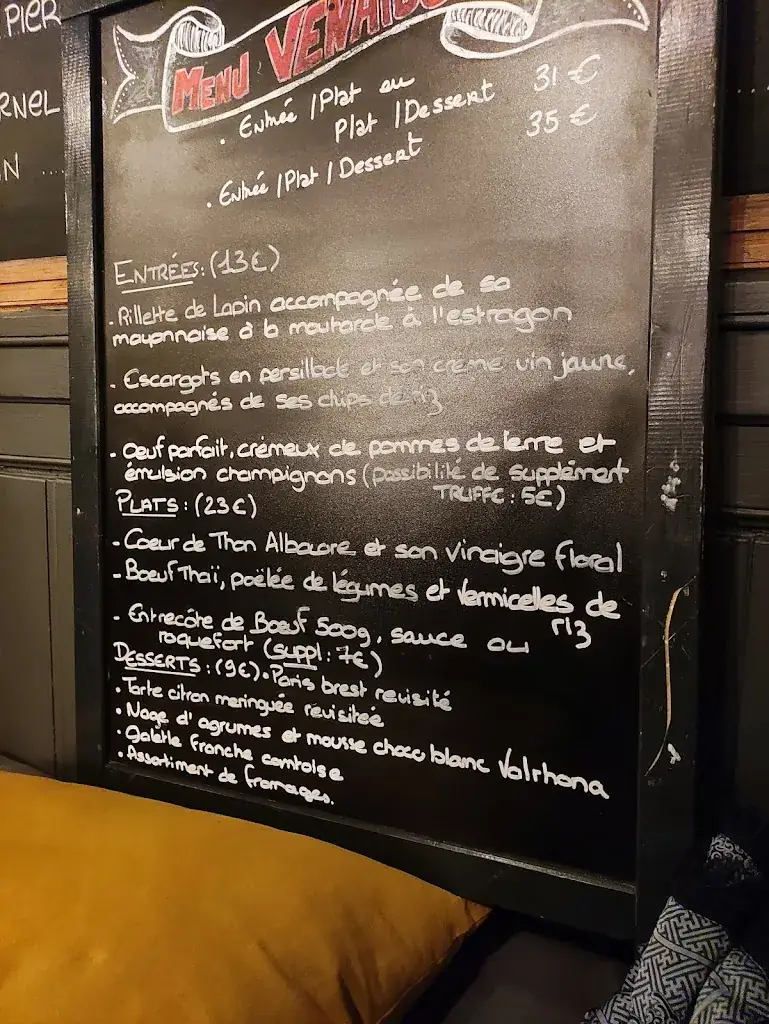 PIER
RNEL
N ....
MENU
. Entrée / Plat ou
Plat / Dessert 31 €
. Entrée / Plat / Dessert 35 €
ENTRÉES : (13€)
. Rillette de Lapin accompagnée de sa
mayonnaise à la moutarde à l'estragon
. Escargots en persillade et son crème vin jaune,
accompagnés de ses chips de riz
. Oeuf parfait, crémeux de pommes de terre et
émulsion champignons (possibilité de supplément
TRUFFE : 5€)
PLATS : (23€)
. Coeur de Thon Albacore et son vinaigre floral
- Boeuf Thaï, poëlée de légumes et Vermicelles de
riz
. Entrecôte de Boeuf 500g, sauce ou
roquefort (suppl : 7€)
DESSERTS : (9€) . Paris brest revisité
. Tarte citron meringuée revisitée
. Nage d'agrumes et mousse choco blanc Valrhona
. Galette franche comtoise
. Assortiment de fromages.